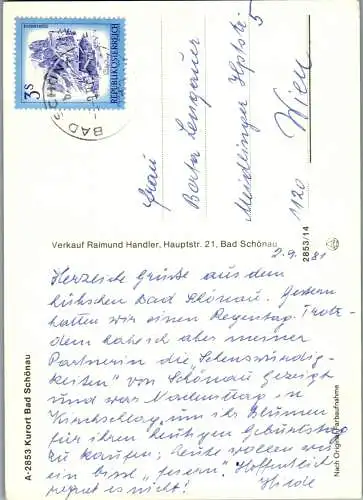 REPUBLIK ÖSTERREICH
3S
BAD SCHÖNAU
Frau
Berta Lengauer
Meidlinger Hptstr.
5
1120 Wien
Verkauf Raimund Handler, Hauptstr. 21, Bad Schönau
2853/14
A-2853 Kurort Bad Schönau
Nach Original-Farbaufnahme
2.9.81
Herzliche Grüsse aus dem
hübschen Bad Schönau. Gestern
hatten wir einen Regentag. Trotz-
dem hab ich aber meiner
Partnerin die "Sehenswürdig-
keiten" von Schönau gezeigt
und war Nachmittag in
Kirschlag, um ihr Blumen
für ihren heutigen Geburtstag
zu kaufen; heute wollen wir
ein bissl "feiern". Hoffentlich
regnet es nicht!
Hilde